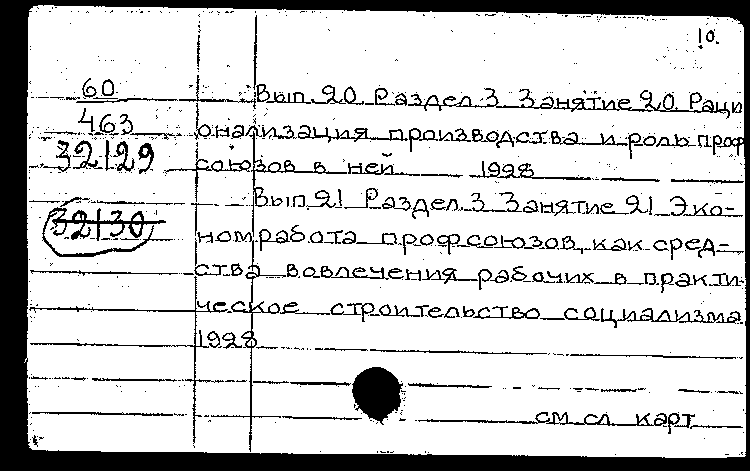 10.
60
463
32129
32130
Вып. 20. Раздел 3 Занятие 20. Раци
онализация производства и роль проф
союзов в ней 1928
Вып. 21 Раздел 3 Занятие 21 Эко-
номработа профсоюзов, как сред-
ства вовлечения рабочих в практи-
ческое строительство социализма
1928
см. сл. карт